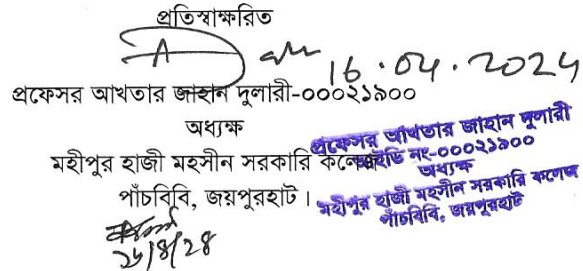 প্রতিস্বাক্ষরিত
16.04.2024
প্রফেসর আখতার জাহান দুলারী-০০০২১৯০০
অধ্যক্ষ
মহীপুর হাজী মহসীন সরকারি কলেজ
পাঁচবিবি, জয়পুরহাট।
প্রফেসর আখতার জাহান দুলারী
আইডি নং-০০০২১৯০০
অধ্যক্ষ
মহীপুর হাজী মহসীন সরকারি কলেজ
পাঁচবিবি, জয়পুরহাট